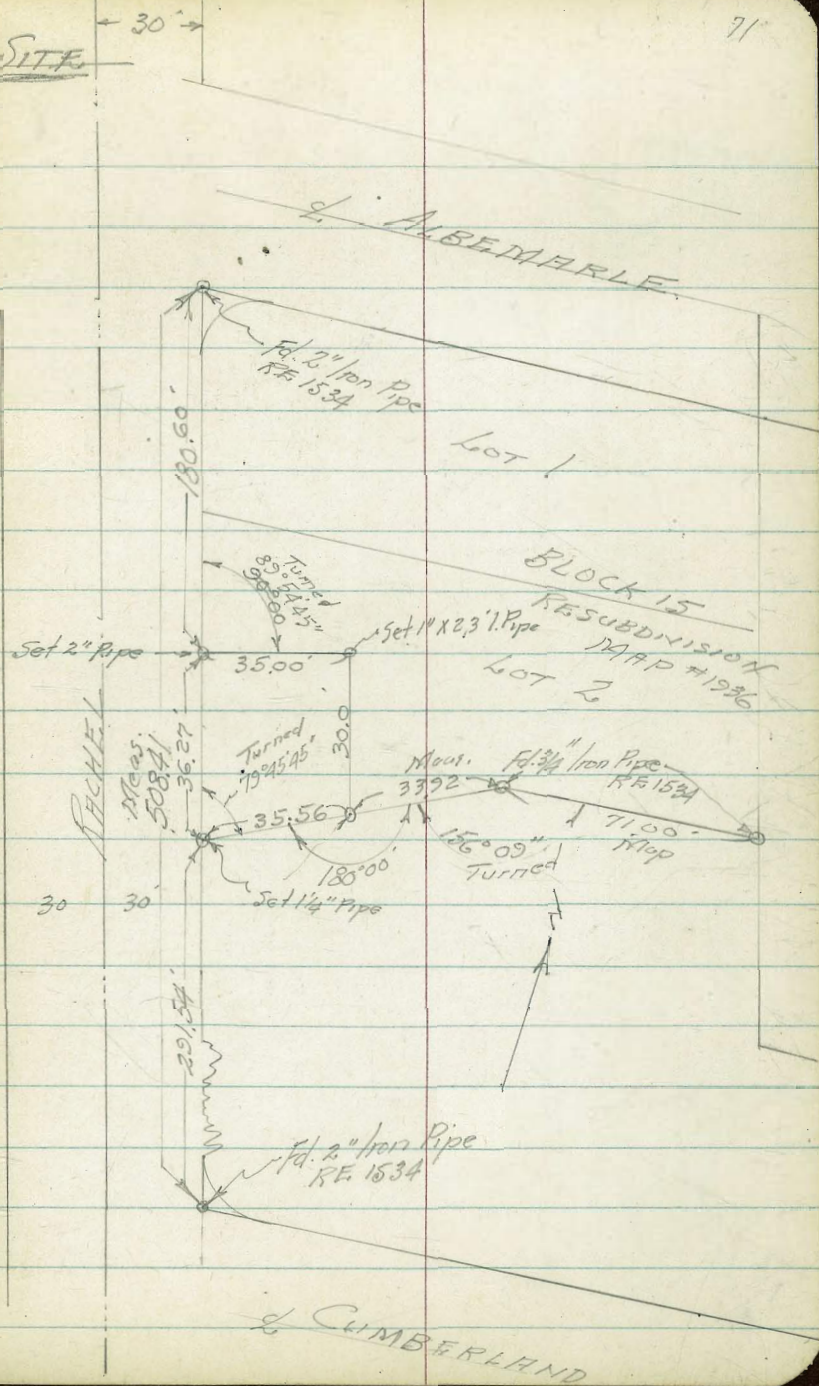 71
30'
SITE
℄ ALBEMARLE
Fd. 2" Iron Pipe
RE 1534
180.60'
LOT 1
BLOCK 15
RESUBDIVISION
MAP #1936
Turned
89°54'45"
90°00'
Set 1" X 2.3' I. Pipe
Set 2" Pipe
35.00'
LOT 2
RACHEL
Meas.
508.41
36.27'
30.0
Turned
79°45'45"
Meas.
33.92
Fd. 3/4" Iron Pipe
RE 1534
35.56
71.00'
Map
156°09"
Turned
180°00'
Set 1 1/4" Pipe
30
30'
291.54'
Fd. 2" Iron Pipe
RE 1534
℄ CUMBERLAND